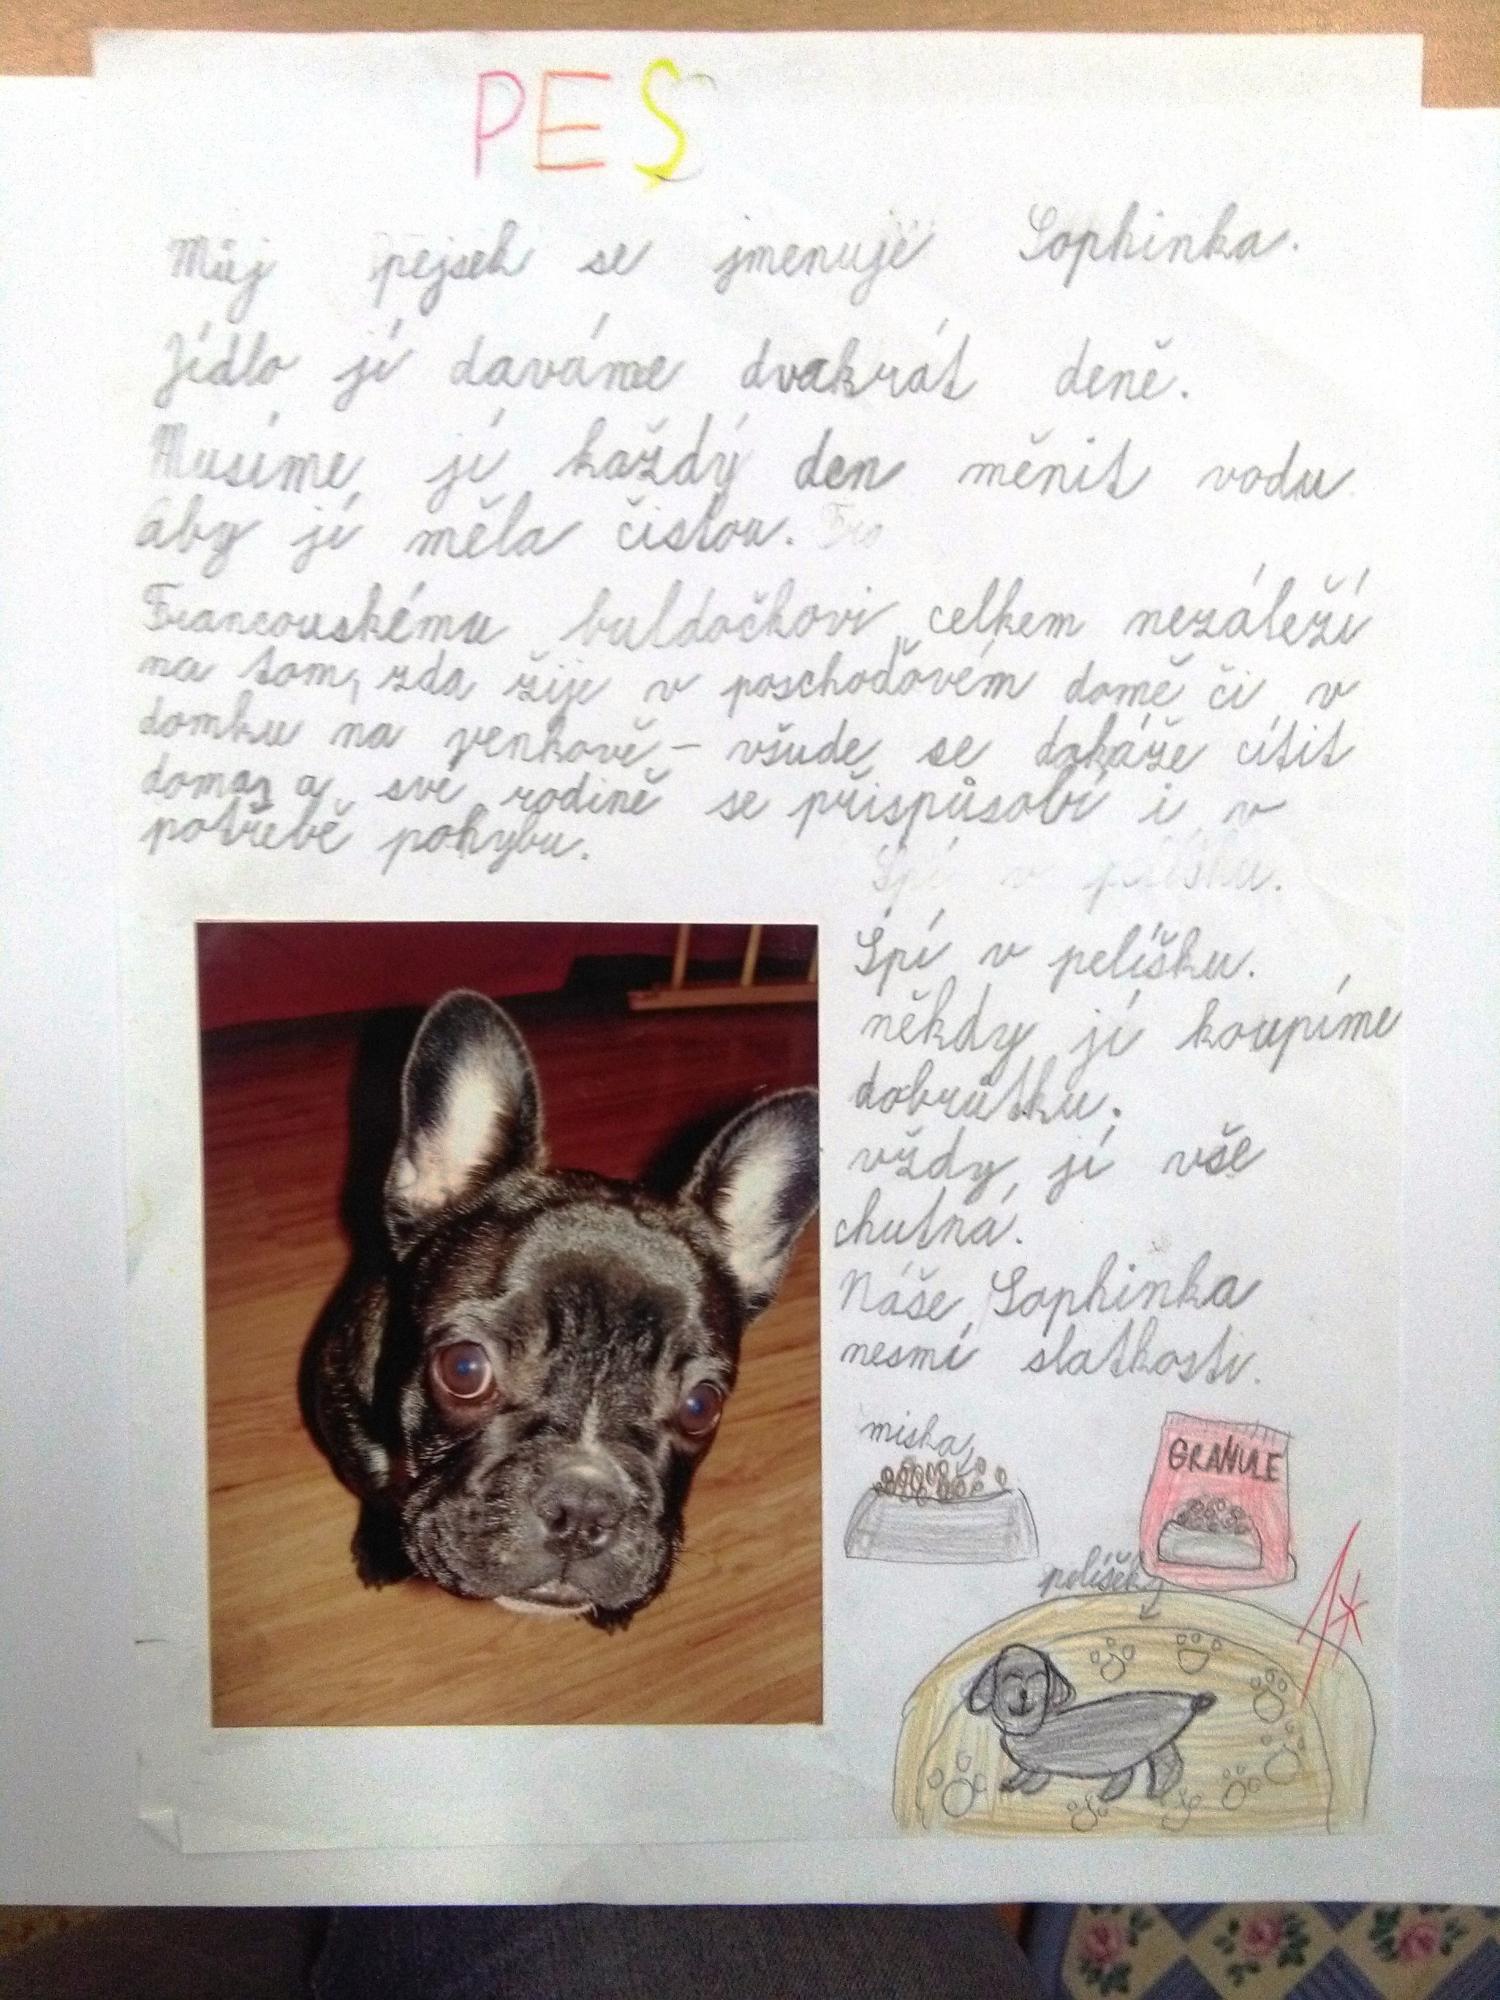 PES
Můj pejsek se jmenuje Sophinka.
Jídlo jí daváme dvakrát deně.
Musíme jí každý den měnit vodu
aby jí měla čistou. Fra
Francouskému buldočkovi celkem nezáleží
na tom, zda žije v poschoďovém domě či v
domku na venkově - všude se dokáže cítit
doma a své rodině se přispůsobí i v
potřebě pohybu.
Spí v pelíšku.
Spí v pelíšku.
někdy jí koupíme
dobrůtku.
vždy jí vše
chutná.
Náše Sophinka
nesmí slatkosti.
miska
GRANULE
pelíšek
1*